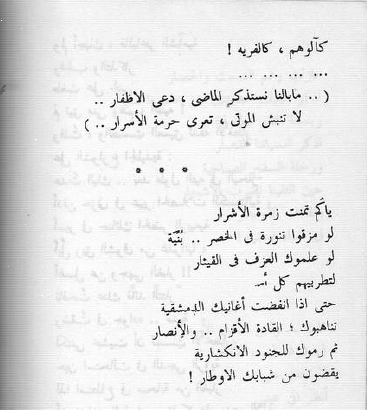 كآلوهم ، كالفريه !
... ... ... ...
( .. مابالنا نستذكر الماضى ، دعى الاظفار ..
لا تنبش الموتى ، تعرى حرمة الأسرار .. )
* * *
ياكم تمنت زمرة الأشرار
لو مزقوا تنورة فى الخصر .. بُنّيّة
لو علموك العزف فى القيثار
لتطربيهم كل أمسـ
حتى اذا انفضت أغانيك الدمشقية
تناهبوك ؛ القادة الأقزام .. والأنصار
ثم رموك للجنود الانكشارية
يقضون من شبابك الاوطار !